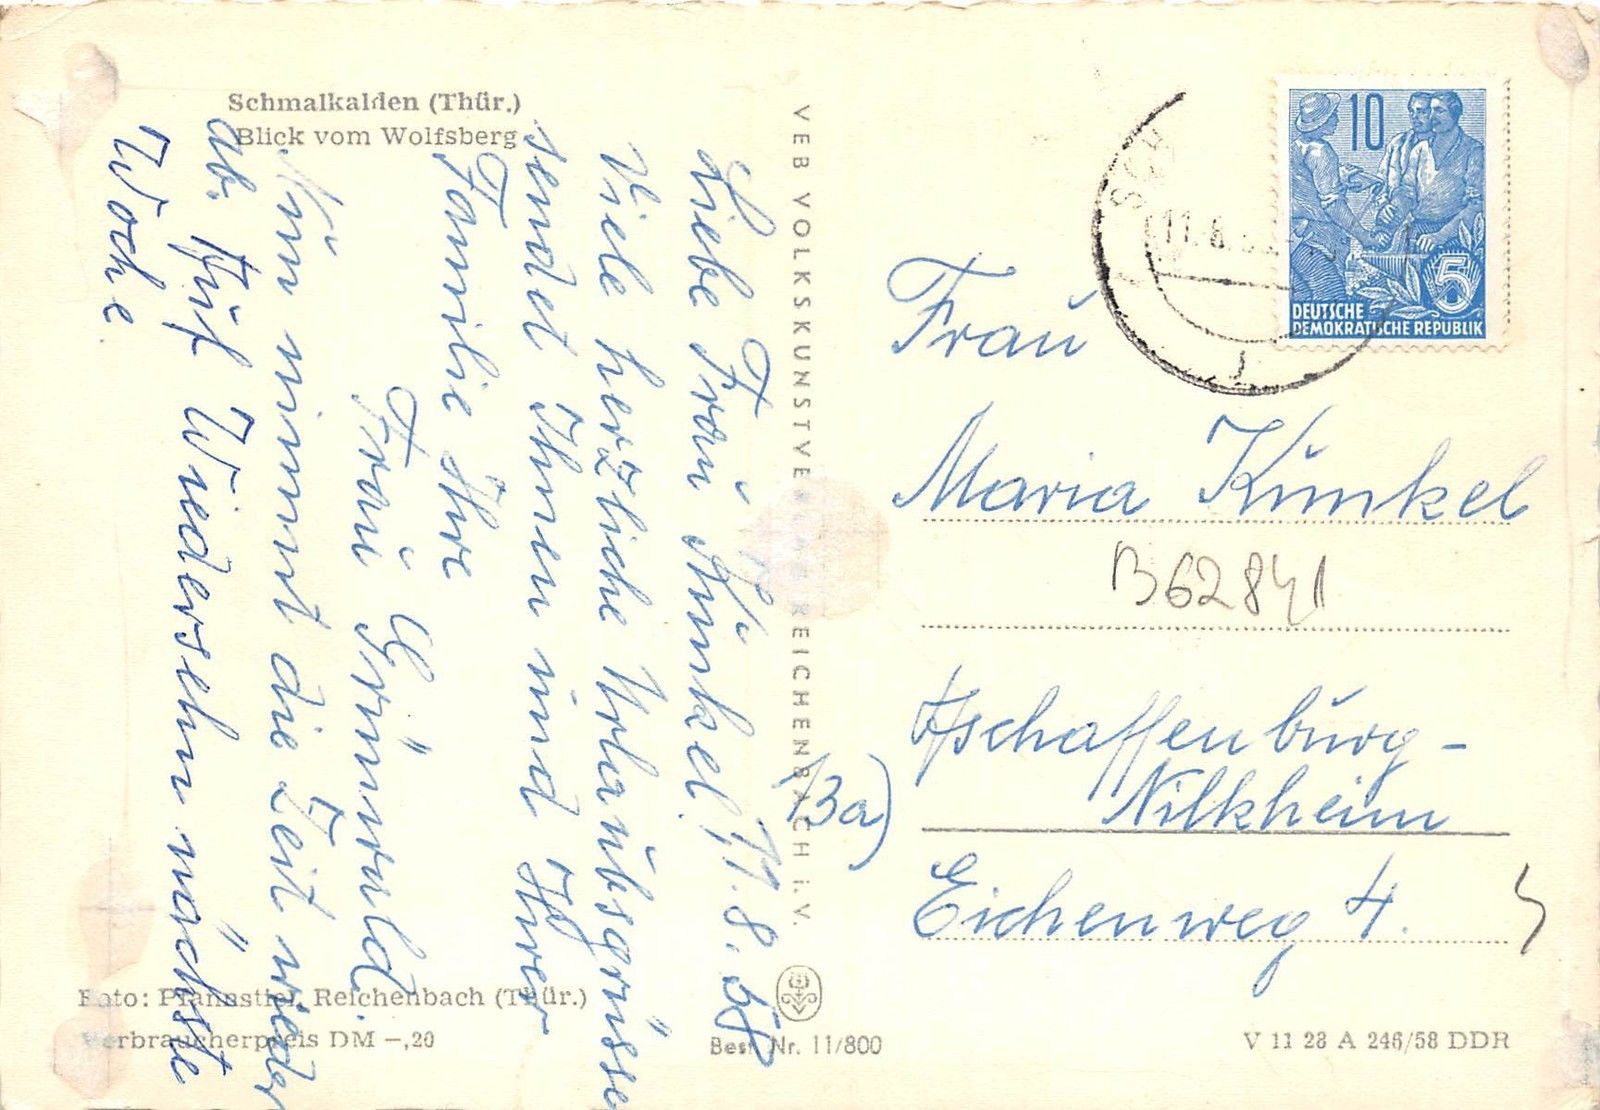 Schmalkalden (Thür.)
Blick vom Wolfsberg
11.8.58
Liebe Frau Kunkel!
Viele herzliche Urlaubsgrüsse
sendet Ihnen und Ihrer
Familie Ihre
Frau Grünwald.
Nun nimmt die Zeit wieder
ab. Auf Wiedersehn nächste
Woche.
Foto: Pfannstiel, Reichenbach (Thür.)
Verbraucherpreis DM -,20
VEB VOLKSKUNSTVERLAG REICHENBACH i. V.
Best. Nr. 11/800
10
5
DEUTSCHE
DEMOKRATISCHE REPUBLIK
Frau
Maria Kunkel
B62841
(13a)
Aschaffenburg-
Nilkheim
Eichenweg 4.
V 11 28 A 246/58 DDR